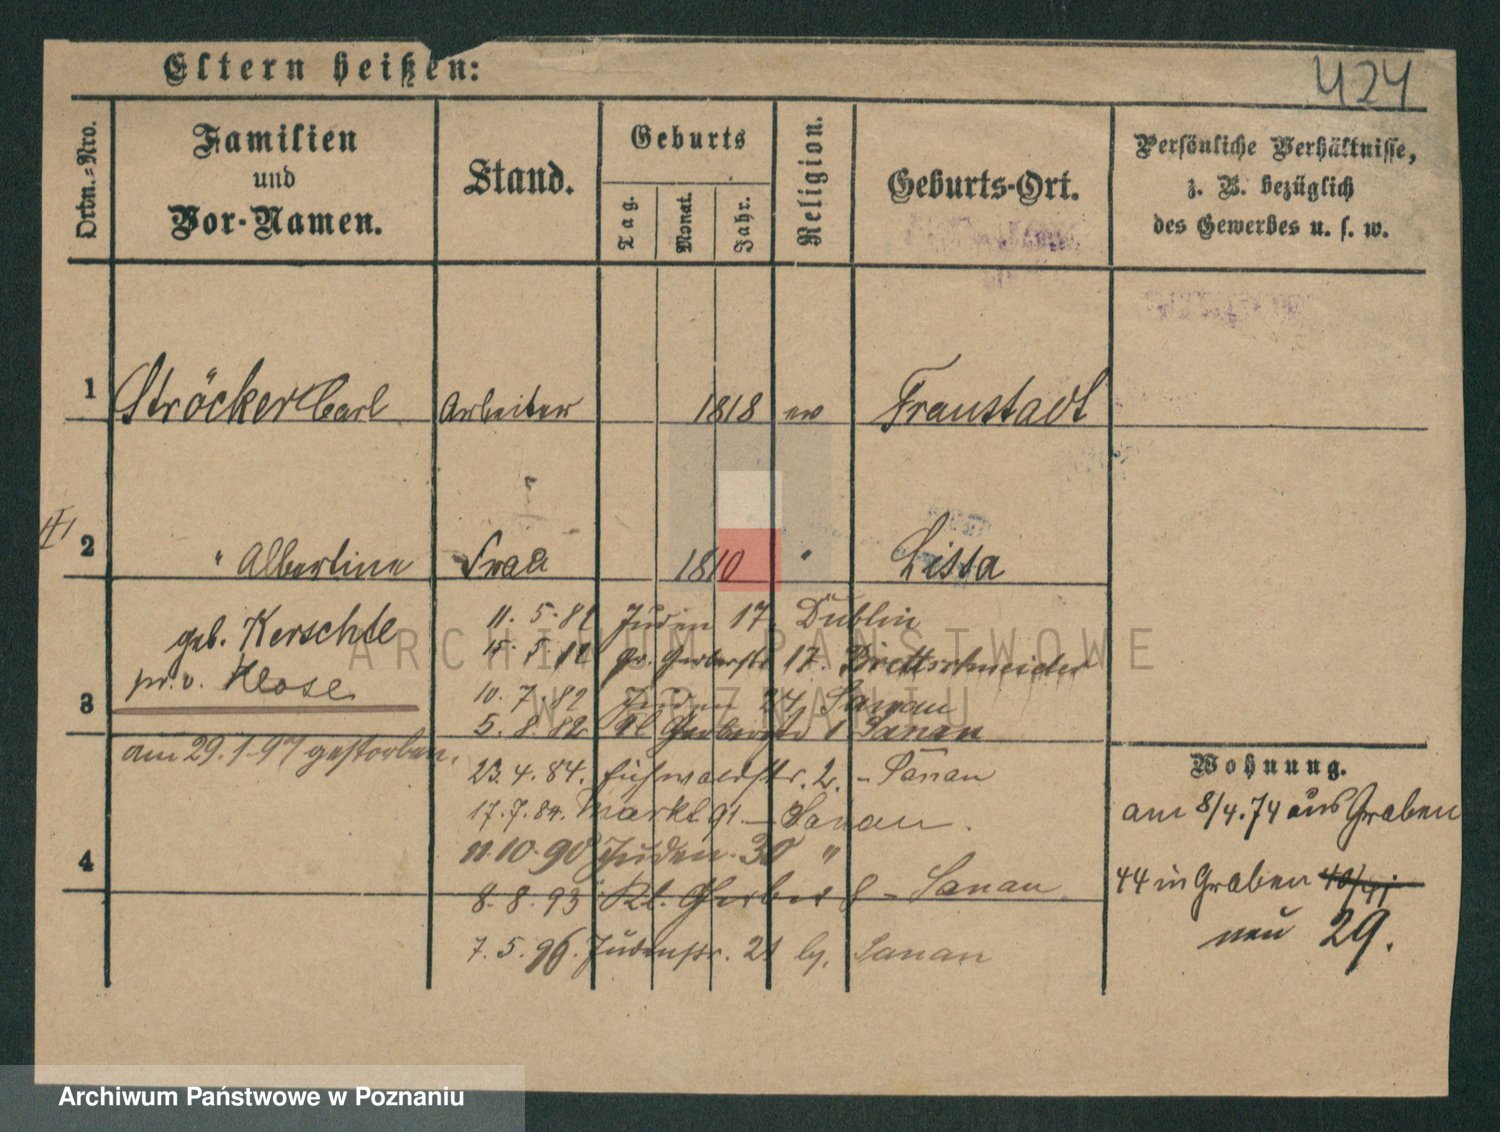 Eltern heißen:
424
Ordn.-Nro.
Familien
und
Vor-Namen.
Stand.
Geburts
Tag.
Monat.
Jahr.
Religion.
Geburts-Ort.
Persönliche Verhältnisse,
z. B. bezüglich
des Gewerbes u. s. w.
1 Ströcker Carl Arbeiter 1818 ev Fraustadt
2 " Albertine Frau 1810 " Lissa
geb. Kerschte
pr. v. Klose
3
am 29.1.97 gestorben.
4
11. 5. 82 Juden 17. Dublin
15. 5. 82 Gr. Gerberstr 17. Brettschneider
10. 7. 82 Juden 24 Sanau
5. 8. 82 Kl Gerberstr 1 Sanau
23. 4. 84. Eichwaldstr. 2. - Sanau
17. 7. 84. Markt 91 - Sanau.
11. 10. 90 Juden. 30 "
8. 8. 93 Kl. Gerber 8 - Sanau
7. 5. 96. Judenstr. 21 by. Sanau
Wohnung.
am 8/4.74 aus Graben
44 in Graben
neu 29.
ARCHIWUM PAŃSTWOWE
W POZNANIU
Archiwum Państwowe w Poznaniu